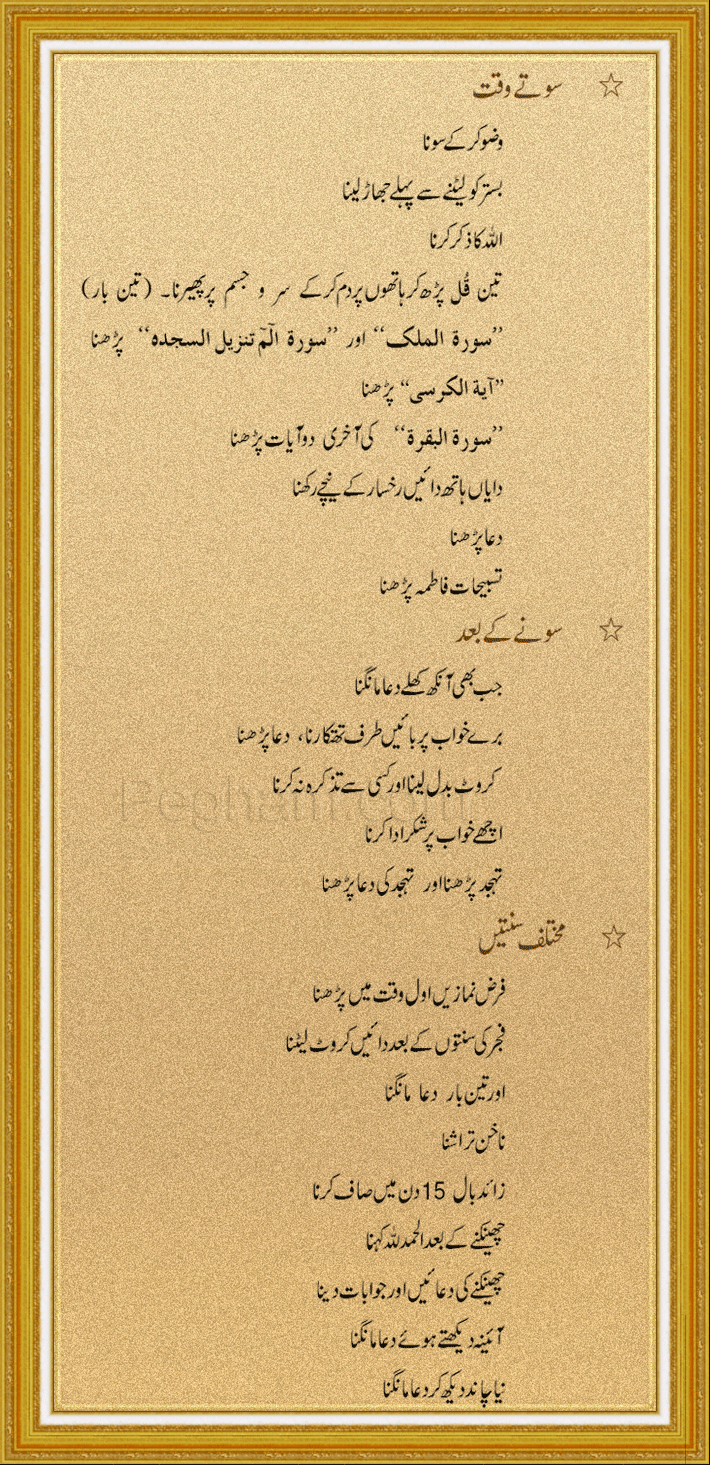 ☆ سوتے وقت
وضو کر کے سونا
بستر کو لیٹنے سے پہلے جھاڑ لینا
اللہ کا ذکر کرنا
تین قُل پڑھ کر ہاتھوں پر دم کر کے سر و جسم پر پھیرنا۔ (تین بار)
”سورة الملک“ اور ”سورة الٓمّٓ تنزیل السجدہ“ پڑھنا
”آیة الکرسی“ پڑھنا
”سورة البقرة“ کی آخری دو آیات پڑھنا
دایاں ہاتھ دائیں رخسار کے نیچے رکھنا
دعا پڑھنا
تسبیحات فاطمہ پڑھنا
☆ سونے کے بعد
جب بھی آنکھ کھلے دعا مانگنا
برے خواب پر بائیں طرف تھتکارنا، دعا پڑھنا
کروٹ بدل لینا اور کسی سے تذکرہ نہ کرنا
اچھے خواب پر شکر ادا کرنا
تہجد پڑھنا اور تہجد کی دعا پڑھنا
☆ مختلف سنتیں
فرض نمازیں اول وقت میں پڑھنا
فجر کی سنتوں کے بعد دائیں کروٹ لیٹنا
اور تین بار دعا مانگنا
ناخن تراشنا
زائد بال 15 دن میں صاف کرنا
چھینکنے کے بعد الحمد للہ کہنا
چھینکنے کی دعائیں اور جوابات دینا
آئینہ دیکھتے ہوئے دعا مانگنا
نیا چاند دیکھ کر دعا مانگنا